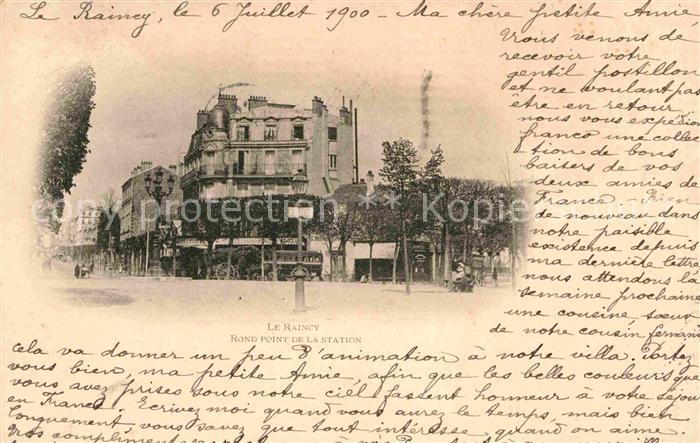 Le Raincy, le 6 Juillet 1900 - Ma chère petite Amie,
Nous venons de
recevoir votre
gentil postillon
et ne voulant pas
être en retour,
nous vous expédions
franco une collec
tion de bons
baisers de vos
deux amies de
France. Rien
de nouveau dans
notre paisible
existence depuis
ma dernière lettre
nous attendons la
semaine prochaine
une cousine, sœur
de notre cousin Fernand
LE RAINCY
ROND POINT DE LA STATION
cela va donner un peu d'animation à notre villa. Portez
vous bien, ma petite Amie, afin que les belles couleurs que
vous avez prises sous notre ciel fassent honneur à votre séjour
en France. Ecrivez moi quand vous aurez le temps, mais bien
longuement, vous savez que tout intéresse quand on aime.
Nos compliments